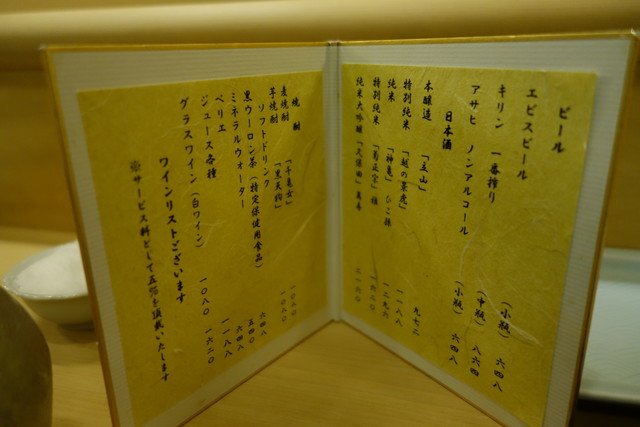 ビール
エビスビール （小瓶） 六四八
キリン 一番搾り （中瓶） 八六四
アサヒ ノンアルコール （小瓶） 六四八
日本酒
本醸造 「立山」 九七二
特別純米 「越の景虎」 一一八八
純米 「神亀」 ひこ孫 一二九六
特別純米 「菊正宗」 一六二〇
純米大吟醸 「久保田」 萬寿 二一六〇
焼酎
麦焼酎 「千亀女」 一〇八〇
芋焼酎 「黒天狗」 一〇八〇
ソフトドリンク
黒ウーロン茶（特定保健用食品） 六四八
ミネラルウォーター 五四〇
ペリエ 六四八
ジュース各種 一一八八
グラスワイン （白ワイン） 一〇八〇 一六二〇
ワインリストございます
※サービス料として五%を頂戴いたします